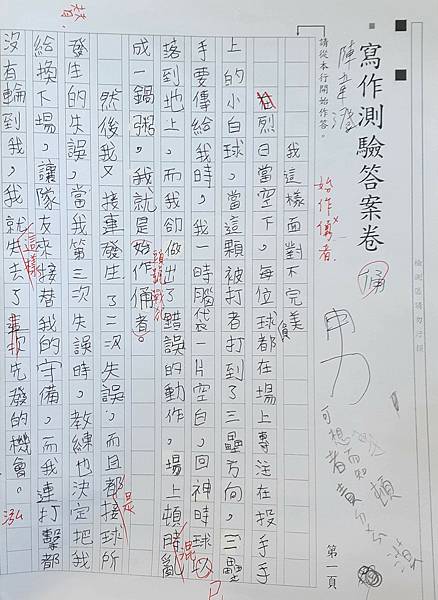 寫作測驗答案卷
請從本行開始作答。
始作俑者
俑
可想而知
第一頁
我這樣面對不完美
在烈日當空下，每位球員都在場上專注在投手手
上的小白球，當這顆被打者打到了三壘方向，三壘
手要傳給我時，我一時腦袋一片空白，回神時球
落到地上，而我卻做出了錯誤的動作，場上頓時亂
混
成一鍋粥，我就是始作俑者。
然後我又接連發生了二次失誤，而且都接球所
是
發生的失誤，當我第三次失誤時，教練也決定把我
給換下場，讓隊友來接替我的守備，而我連打擊都
沒有輪到我，我就失去了 先發的機會。
這樣